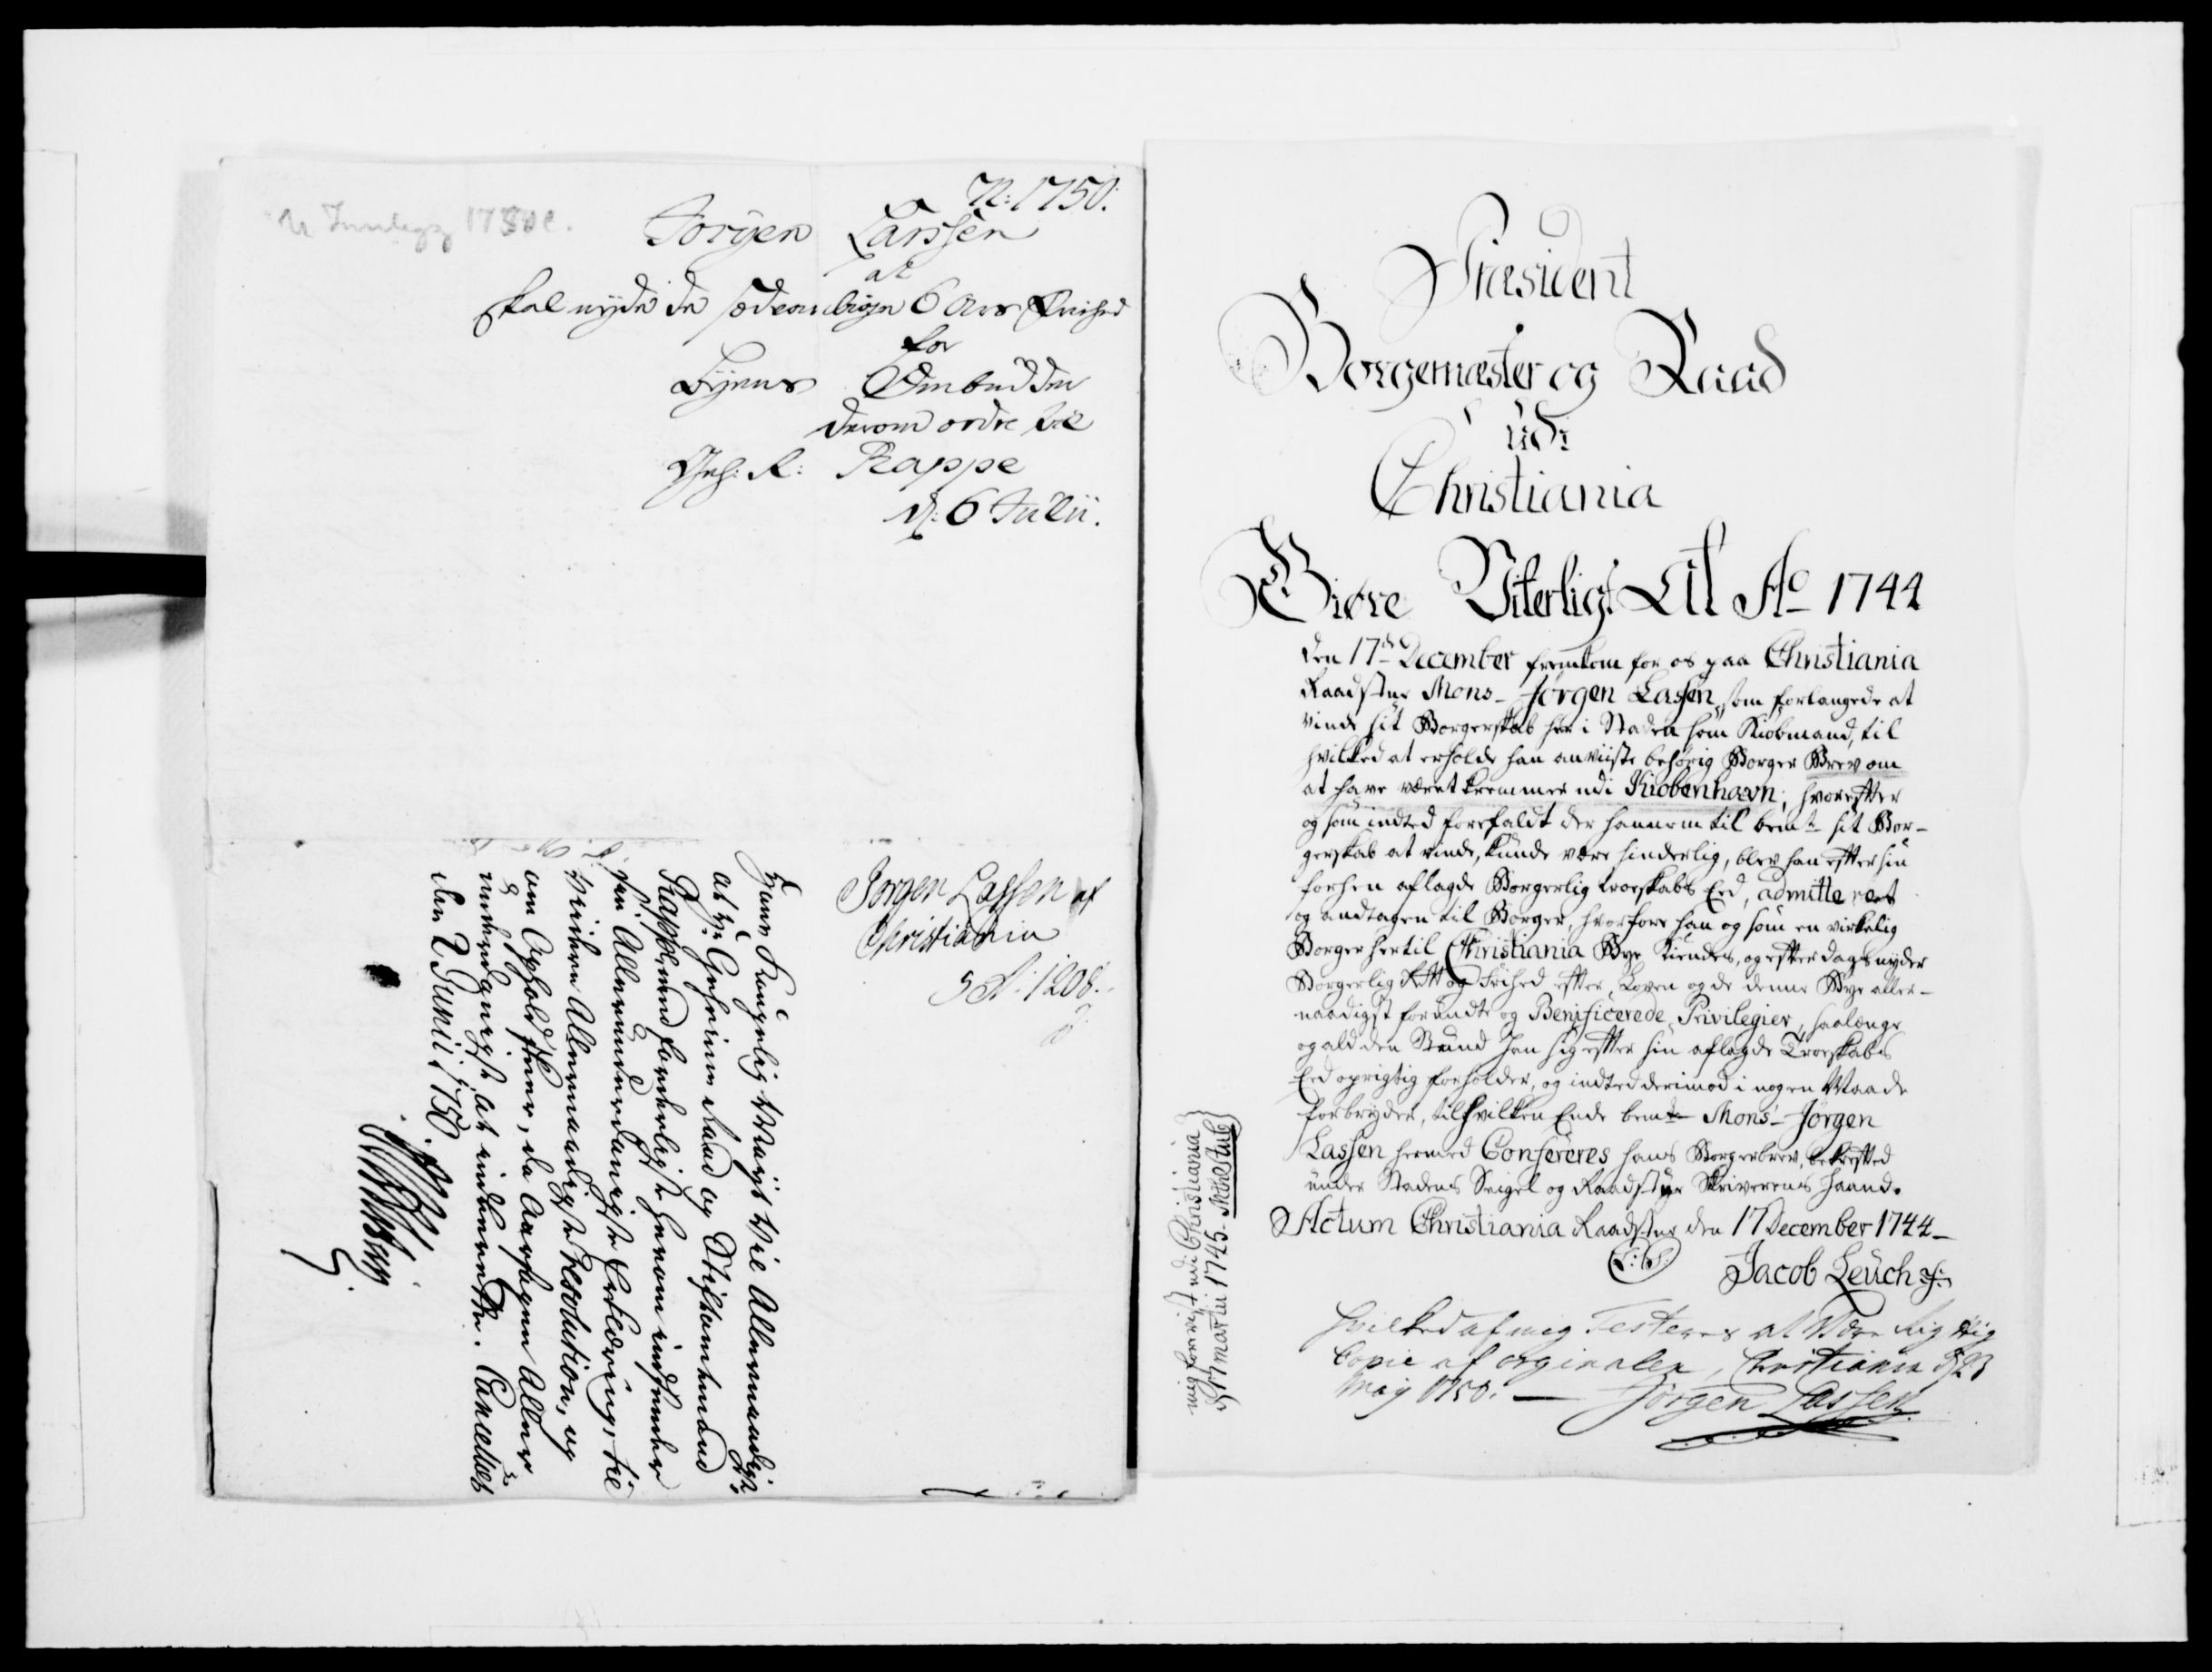 N: 1750.
N Innlegg 1750 c.
Jørgen Lassen
at
skal nyde de sædvanlige 6 Aars Friehed
for
Byens Ombudder
derom ordre til
Geh: R: Rappe
d: 6 Julii.
Jørgen Lassen af
Christiania
S N: 1208.
Hans Kongelig Mayt vil Allernaadigst,
at Hr Geheime Raad og Stiftamtmand
Rappe med forderligste herom indsender
sin Allerunderdanigste Erklæring, til
videre Allernaadigste Resolution, og
om Ophold skeer, da Aarsagen Aller
underdanigst at indberette. Cancelliet
den 2 Junii 1750
Præsident
Borgemæster og Raad
udi
Christiania
Giøre Viterligt at Ao 1744
den 17de December fremkom for os paa Christiania
Raadstue Mons. Jørgen Lassen, som forlangede at
vinde sit Borgerskab her i Staden som Kiøbmand, til
hvilked at erholde han anviiste behørig Borger Brev om
at have været kremmer udi Kiøbenhavn; hvorefter
og som indted forefaldt der hannem til bemte sit Bor-
gerskab at vinde, kunde være hinderlig, blev han efter sin
forhen aflagde Borgerlig troeskabs Eed, admitteret
og andtagen til Borger, hvorfore han og som en virkelig
Borger her til Christiania Bye kiendes, og efter dags nyder
Borgerlig Rett og Frihed efter Loven og de denne Bye aller-
naadigst forundte og Benificerede Privilegier, saalænge
og ald den Stund han sig efter sin aflagde Troeskabs
Eed oprigtig forholder, og indted derimod i nogen Maade
forbryder, til hvilken Ende bemte Mons. Jørgen
Lassen hermed Confereres hans Borgerbrev, bekrefted
under Stadens Seigel og Raadstue Skriverens Haand.
Actum Christiania Raadstue den 17 December 1744
(L: S:)
Jacob Leuch
udi Christiania
d 17 martii 1745.
Hvilked af mig Testeres at Være Rigtig
Copie af orginalen, Christiania d 23
May 1750. Jørgen Lassen